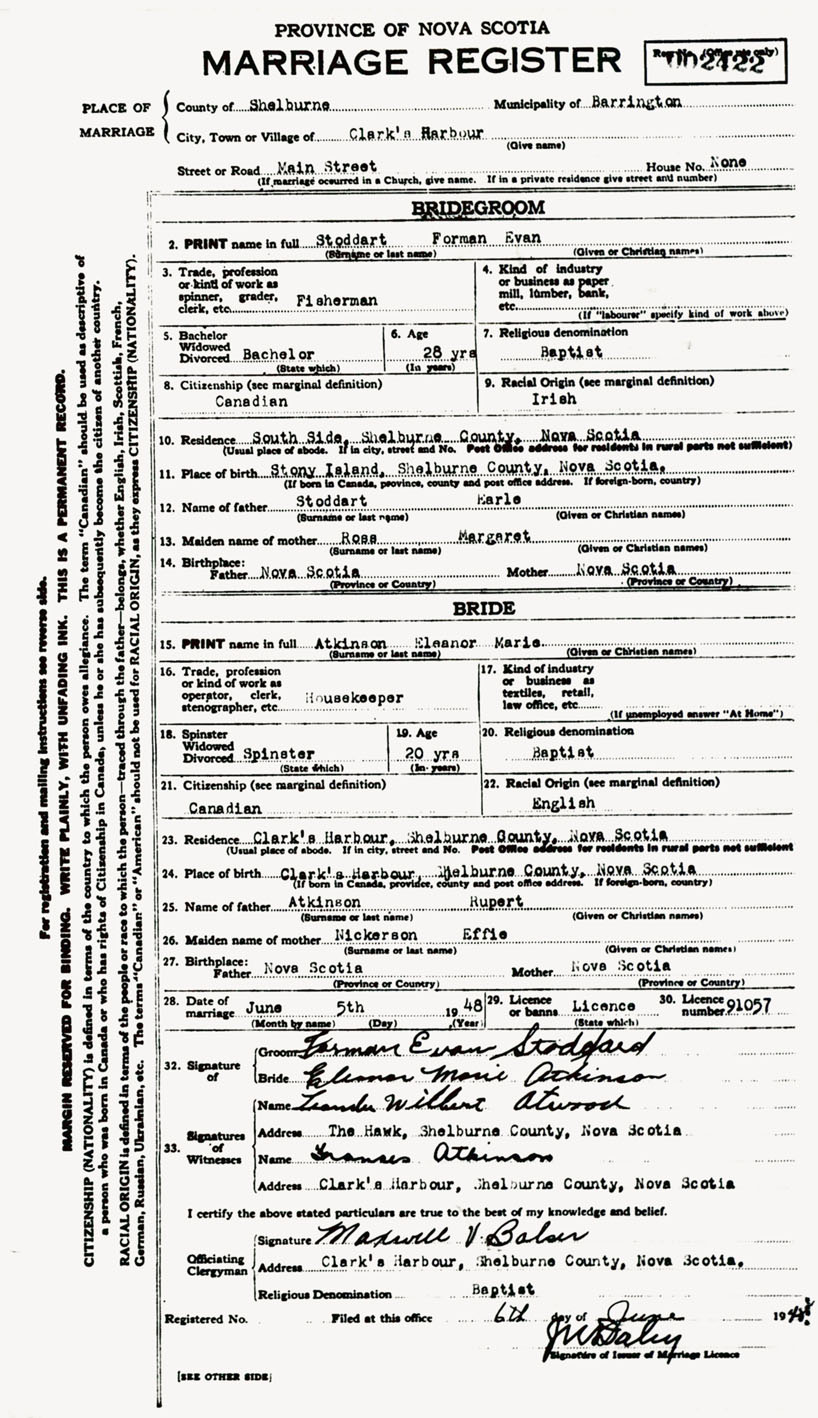 PROVINCE OF NOVA SCOTIA
MARRIAGE REGISTER
Reg. No. (Office use only)
2422
PLACE OF MARRIAGE
County of Shelburne Municipality of Barrington
City, Town or Village of Clark's Harbour
(Give name)
Street or Road Main Street House No. None
(If marriage occurred in a Church, give name. If in a private residence give street and number)
BRIDEGROOM
2. PRINT name in full Stoddart Forman Evan
(Surname or last name) (Given or Christian names)
3. Trade, profession or kind of work as spinner, grader, clerk, etc. Fisherman
4. Kind of industry or business as paper mill, lumber, bank, etc.
(If "labourer" specify kind of work above)
5. Bachelor Widowed Divorced Bachelor
(State which)
6. Age 28 yrs
(In years)
7. Religious denomination
Baptist
8. Citizenship (see marginal definition)
Canadian
9. Racial Origin (see marginal definition)
Irish
10. Residence South Side, Shelburne County, Nova Scotia
(Usual place of abode. If in city, street and No. Post Office address for residents in rural parts not sufficient)
11. Place of birth Stony Island, Shelburne County, Nova Scotia.
(If born in Canada, province, county and post office address. If foreign-born, country)
12. Name of father Stoddart Earle
(Surname or last name) (Given or Christian names)
13. Maiden name of mother Ross Margaret
(Surname or last name) (Given or Christian names)
14. Birthplace:
Father Nova Scotia Mother Nova Scotia
(Province or Country) (Province or Country)
BRIDE
15. PRINT name in full Atkinson Eleanor Marie
(Surname or last name) (Given or Christian names)
16. Trade, profession or kind of work as operator, clerk, stenographer, etc. Housekeeper
17. Kind of industry or business as textiles, retail, law office, etc.
(If unemployed answer "At Home")
18. Spinster Widowed Divorced Spinster
(State which)
19. Age
20 yrs
(In years)
20. Religious denomination
Baptist
21. Citizenship (see marginal definition)
Canadian
22. Racial Origin (see marginal definition)
English
23. Residence Clark's Harbour, Shelburne County, Nova Scotia
(Usual place of abode. If in city, street and No. Post Office address for residents in rural parts not sufficient
24. Place of birth Clark's Harbour, Shelburne County, Nova Scotia
(If born in Canada, province, county and post office address. If foreign-born, country)
25. Name of father Atkinson Rupert
(Surname or last name) (Given or Christian names)
26. Maiden name of mother Nickerson Effie
(Surname or last name) (Given or Christian names)
27. Birthplace:
Father Nova Scotia Mother Nova Scotia
(Province or Country) (Province or Country)
28. Date of marriage June 5th 1948
(Month by name) (Day) (Year)
29. Licence or banns Licence
(State which)
30. Licence number 91057
32. Signature of
Groom Forman Evan Stoddard
Bride Eleanor Marie Atkinson
33. Signatures of Witnesses
Name Leander Wilbert Atwood
Address The Hawk, Shelburne County, Nova Scotia
Name Frances Atkinson
Address Clark's Harbour, Shelburne County, Nova Scotia
I certify the above stated particulars are true to the best of my knowledge and belief.
Officiating Clergyman
Signature Maxwell V. Balser
Address Clark's Harbour, Shelburne County, Nova Scotia.
Religious Denomination Baptist
Registered No. Filed at this office 6th day of June 1948
Signature of Issuer of Marriage Licence
[SEE OTHER SIDE]
For registration and mailing instructions see reverse side.
MARGIN RESERVED FOR BINDING. WRITE PLAINLY, WITH UNFADING INK. THIS IS A PERMANENT RECORD.
CITIZENSHIP (NATIONALITY) is defined in terms of the country to which the person owes allegiance. The term "Canadian" should be used as descriptive of
a person who was born in Canada or who has rights of Citizenship in Canada, unless he or she has subsequently become the citizen of another country.
RACIAL ORIGIN is defined in terms of the people or race to which the person—traced through the father—belongs, whether English, Irish, Scottish, French,
German, Russian, Ukrainian, etc. The terms "Canadian" or "American" should not be used for RACIAL ORIGIN, as they express CITIZENSHIP (NATIONALITY).